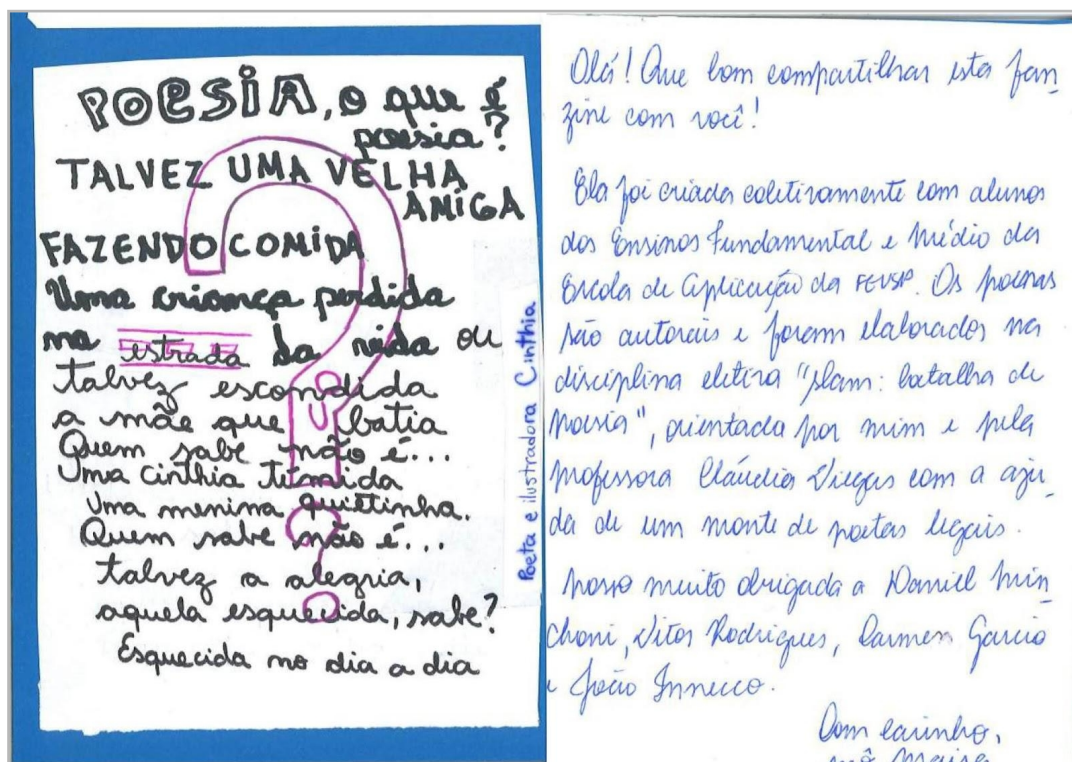 POESIA, o que é
poesia?
TALVEZ UMA VELHA
AMIGA
FAZENDO COMIDA
Uma criança perdida
na estrada da vida ou
talvez escondida
a mãe que batia
Quem sabe não é...
Uma Cinthia
Uma menina quietinha.
Quem sabe não é...
talvez a alegria,
aquela esquecida, sabe?
Esquecida no dia a dia
Poeta e ilustradora Cinthia
Olá! Que bom compartilhar esta fan_
zine com você!
Ela foi criada coletivamente com alunos
dos Ensinos Fundamental e Médio da
Escola de Aplicação da FEUSP. Os poemas
são autorais e foram elaborados na
disciplina eletiva "slam: batalha de
poesia", orientada por mim e pela
professora Cláudia Viegas com a aju_
da de um monte de poetas legais.
Nosso muito obrigada a Daniel Min_
choni, Vitor Rodrigues, Carmen Garcia
e João Innecco.
Com carinho,